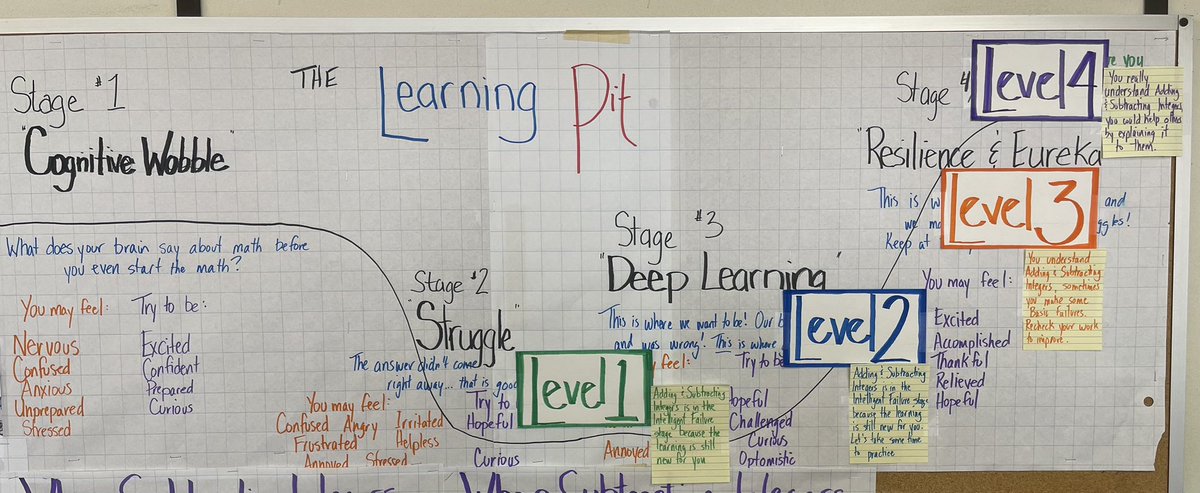 THE Learning Pit
Stage #1
"Cognitive Wobble"
What does your brain say about math before
you even start the math?
You may feel:
Nervous
Confused
Anxious
Unprepared
Stressed
Try to be:
Excited
Confident
Prepared
Curious
Stage #2
"Struggle"
The answer didn't come
right away... that is good
You may feel:
Confused Angry Irritated
Frustrated Helpless
Annoyed Stressed
Try to
Hopeful
Curious
Level 1
Adding & Subtracting
Integers is in the
Intelligent Failure
stage because the
learning is still
new for you
Stage #3
"Deep Learning"
This is where we want to be! Our
and was wrong! This is where
feel:
Annoyed
Try to be
Hopeful
Challenged
Curious
Optomistic
Level 2
Adding & Subtracting
Integers is in the
Intelligent Failure stage
because the learning
is still new for you.
Let's take some time
to practice
Stage
"Resilience & Eureka
This is and
we
Keep at
You may feel:
Excited
Accomplished
Thankful
Relieved
Hopeful
Level 3
You understand
Adding & Subtracting
Integers, sometimes
you make some
"Basic failures.
Recheck your work
to improve.
Level 4
you
You really
understand Adding
& Subtracting Integers
you would help others
by explaining it
to them.